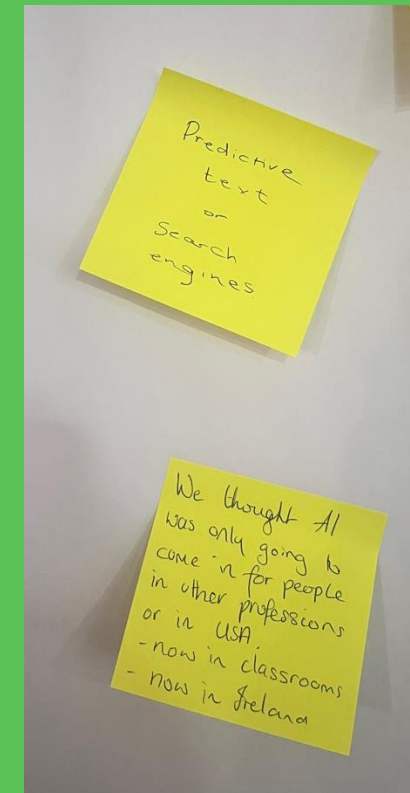 Predictive
text
or
Search
engines
We thought AI
was only going to
come in for people
in other professions
or in USA.
- now in classrooms
- now in Ireland